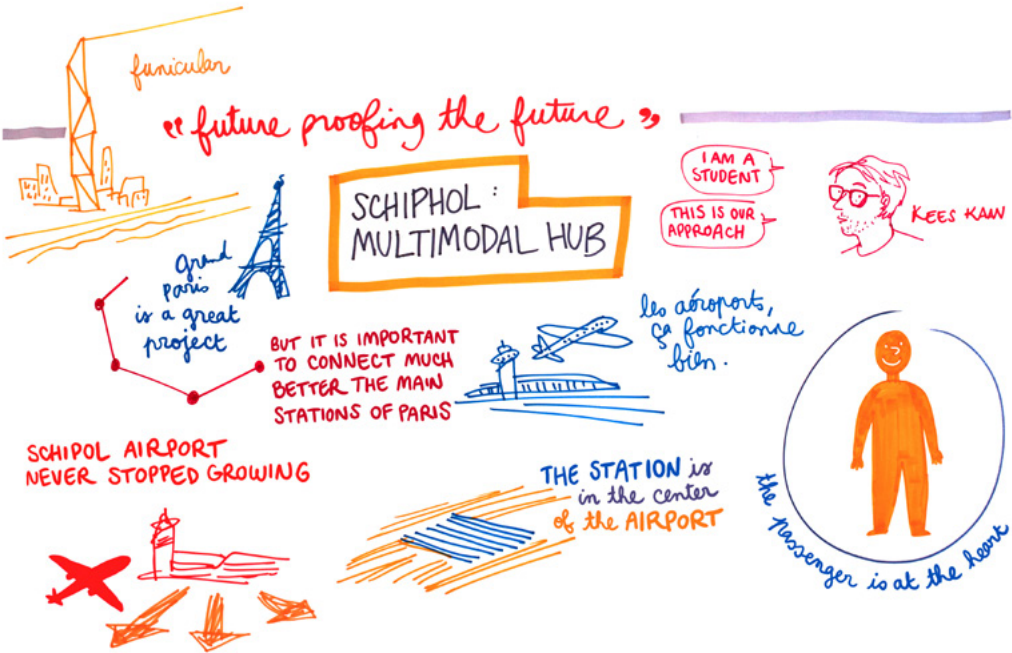 funicular
"future proofing the future"
SCHIPHOL :
MULTIMODAL HUB
I AM A
STUDENT
THIS IS OUR
APPROACH
KEES KAAN
grand
paris
is a great
project
BUT IT IS IMPORTANT
TO CONNECT MUCH
BETTER THE MAIN
STATIONS OF PARIS
les aéroports,
ça fonctionne
bien.
SCHIPOL AIRPORT
NEVER STOPPED GROWING
THE STATION is
in the center
of the AIRPORT
the passenger is at the heart